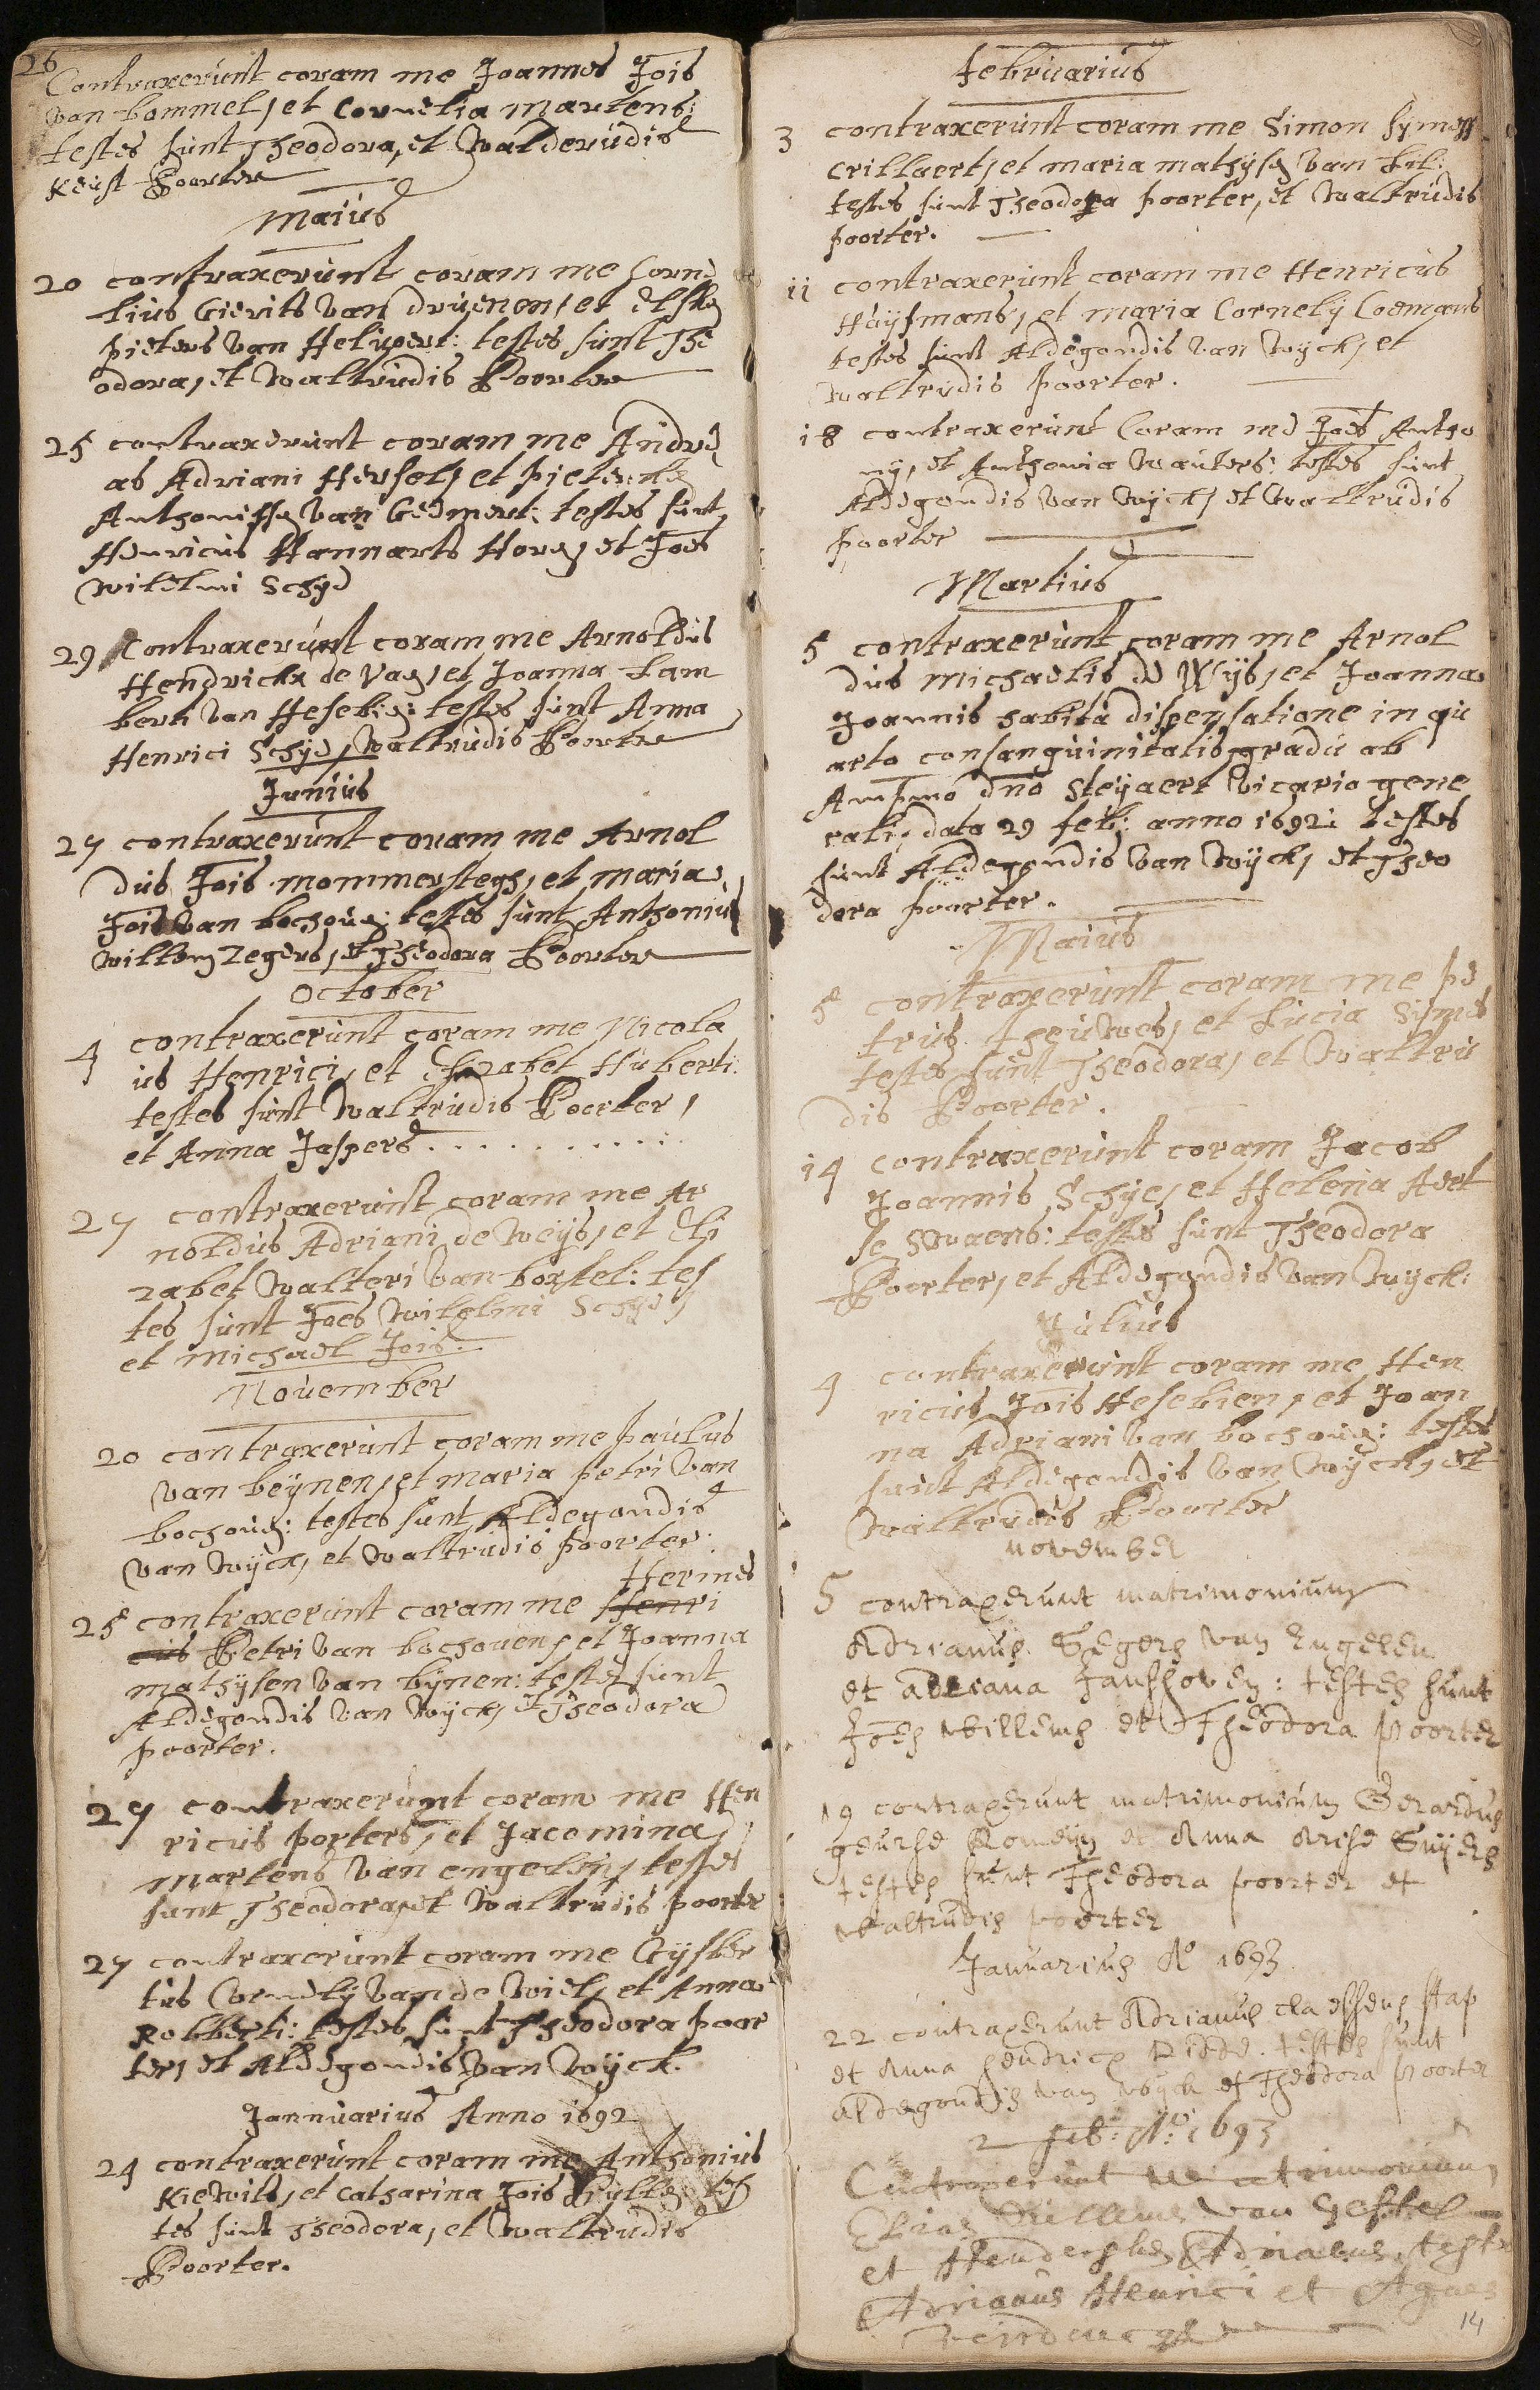 26
Contraxerunt coram me Joannes Jois
van bommel, et Cornelia martens:
testes sunt Theodora, et Walderudis
Poorter
maius
20 contraxerunt coram me Corne
lius Gierits van druenen, et
pieters van Helupert: testes sunt The
odora, et waltrudis Poorter
25 contraxerunt coram me Andre
as Adriani Hersel, et
Anthonisse van testes sunt
Henricus Hannarts et Joes
wilelmi Schye
29 Contraxerunt coram me Arnoldus
Hendrickx de Vaen, et Joanna Lam
berti van testes sunt Anna
Henrici Schye, Waltrudis Poorter
Junius
27 contraxerunt coram me Arnol
dus Jois mommersteghs, et maria
Jois van bochouen: testes sunt Anthonius
willem zegers, et Theodora Poorter
October
4 contraxerunt coram me Nicola
us Henrici, et Elizabet Huberti:
testes sunt Waltrudis Poorter,
et Anna Jaspers . . . . . . . . . . .
27 contraxerunt coram me Ar
noldus Adriani de weijs, et Eli
zabet walteri van boxtel: tes
tes sunt Joes wilelmi Schye,
et michael Jois.
November
20 contraxerunt coram me paulus
van beijnen, et maria petri van
bochouen: testes sunt Aldegondis
van wijck, et waltrudis poorter.
Hermes
25 contraxerunt coram me Henri
cus Petri van bochouen, et Joanna
mathijsen van bijnen: testes sunt
Aldegondis van wijck, et Theodora
poorter.
27 contraxerunt coram me Hen
ricus porters, et Jacomina
martens van engelen, testes
sunt Theodora, et Waltrudis poorter
27 contraxerunt coram me Gijsber
tus Cornelij van de wiel, et Anna
Robberti: testes sunt Theodora poor
ter, et Aldegondis van wijck.
Jannuarius Anno 1692
24 contraxerunt coram me Anthonius
Kiewits, et Catharina Jois tes
tes sunt Theodora, et Waltrudis
Poorter.
februarius
3 contraxerunt coram me Simon Symons
Crillaert, et maria mathijsen van
testes sunt Theodora poorter, et Waltrudis
poorter.
11 contraxerunt coram me Henricus
Huijsmans, et maria Cornelij Coemans
testes sunt Aldegondis van wijck, et
Waltrudis poorter.
18 contraxerunt Coram me Joes Antho
nij, et Anthonia Wauters: testes sunt
Aldegondis van wijck, et Waltrudis
poorter
Martius
5 contraxerunt coram me Arnol
dus Michaelis de Wijs, et Joanna
Joannis habita dispensatione in qu
arto consanguinitatis gradu ab
Ampmo dno Steijaert Vicario gene
rali, data 29 feb: anno 1692: testes
sunt Aldegondis van wijck, et Theo
dora poorter.
Maius
5 contraxerunt coram me pe
trus theuwes, et Lucia Sijmes
testes sunt Theodora, et Waltru
dis Poorter.
14 contraxerunt coram Jacob
Joannis Schye, et Helena Aert
se Swaens: testes sunt Theodora
Poorter, et Aldegondis van wijck:
Julius
4 contraxerunt coram me Hen
ricus Jois Heselien, et Joan
na Adriani van bochouen: testes
sunt Aldegondis van wijck, et
Waltrudis Poorter
november
5 contraxerunt matrimonium
Adrianus Segers van Engelen
et adriana Janshoven: testes sunt
Joes willems et Theodora poorter
19 contraxerunt matrimonium Gerardus
geurse Romeijn et Anna Arise Suijers
testes sunt Theodora poorter et
waltrudis poorter
Januarius Ao 1693
22 contraxerunt Adrianus claessens Hap
et Anna hendricx Ridde. testes sunt
aldegondis van wijck et Theodora poorter
2 feb: Ao: 1693
Contraxerunt matrimonium
Elias Willems van gestel
et Henderske Adriaens, testes
Adrianus Henrici et Agnes

14